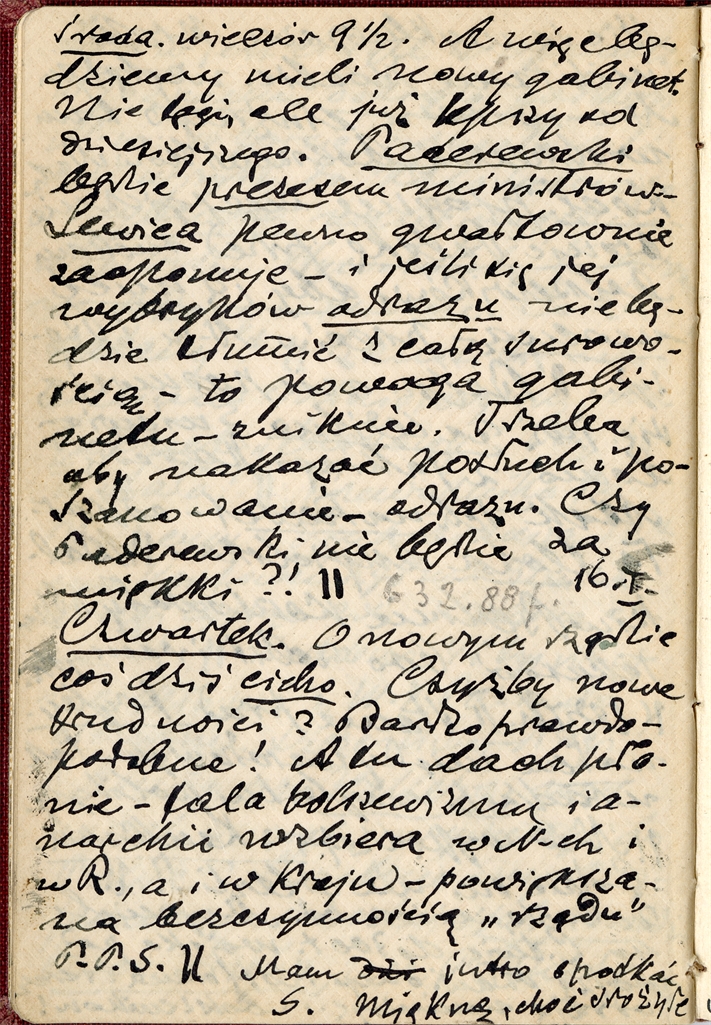 Środa. wieczór 9 1/2. A więc bę-
dziemy mieli nowy gabinet.
Nie tęgi, ale już lepszy od
dzisiejszego. Paderewski
będzie prezesem ministrów.-
Lewica pewno gwałtownie
zaoponuje - i jeśli się jej
wybryków odrazu nie bę-
dzie tłumić z całą surowo-
ścią - to powaga gabi-
netu - zniknie. Trzeba
aby nakazać posłuch i po-
szanowanie - odrazu. Czy
Paderewski nie będzie za
miękki?! || 16.I.
632.88 f.
Czwartek. O nowym rządzie
coś dziś cicho. Czyżby nowe
trudności? Bardzo prawdo-
podobne! A tu dach pło-
nie - fala bolszewizmu i a-
narchii wzbiera w N-ch i
w R., a i w Kraju - powiększa-
na bezczynnością „rządu"
P.P.S. || Mam dziś jutro spotkać
S. Miękną, choć